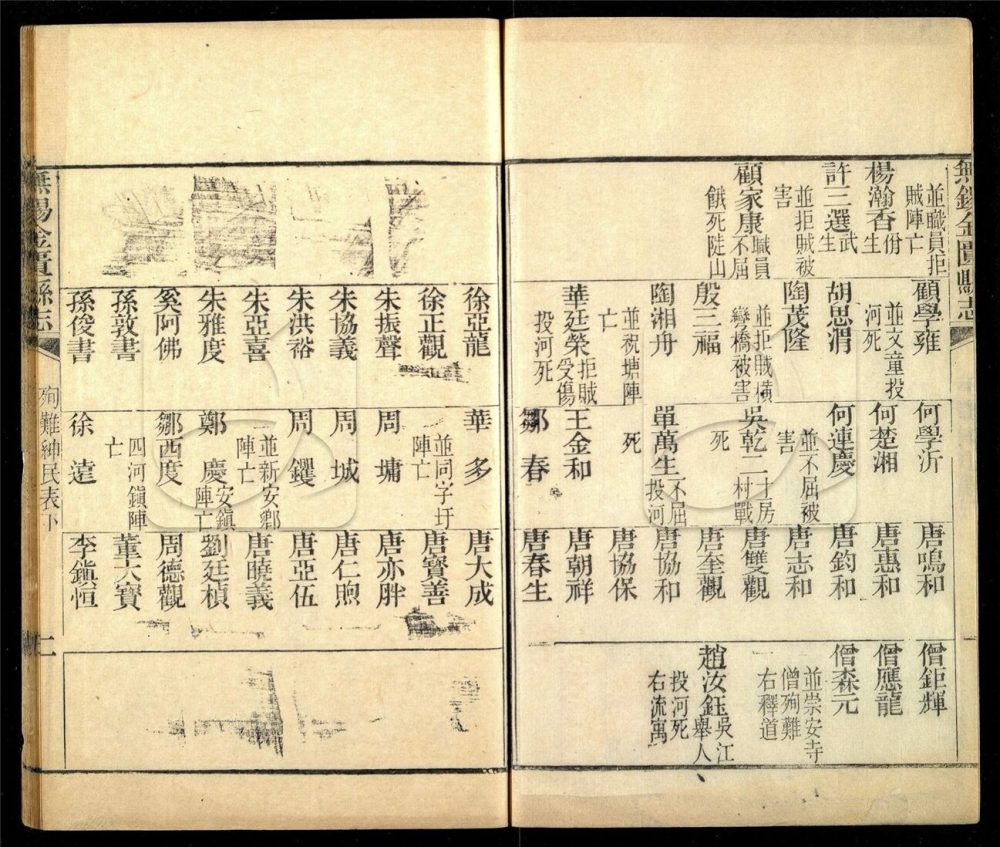 無錫金匱縣志
並職員拒
賊陣亡
楊瀚香份
生
許三選武
生
並拒賊被
害
顧家康職員
不屈
餓死陡山
顧學雍
並文童投
河死
胡思渭
陶茂隆
並拒賊橫
彎橋被害
殷三福
陶湘舟
並祝塘陣
亡
華廷榮拒賊
受傷
投河死
何學沂
何楚湘
何連慶
並不屈被
害
吳乾一二十房
村戰
死
單萬生不屈
投河
死
王金和
鄒春
唐鳴和
唐惠和
唐鈞和
唐志和
唐雙觀
唐奎觀
唐協和
唐協保
唐朝祥
唐春生
僧鉅輝
僧應龍
僧森元
並崇安寺
僧殉難
右釋道
趙汝鈺吳江
舉人
投河死
右流寓
徐亞龍
徐正觀
朱振聲
朱協義
朱洪裕
朱亞喜
朱雅度
奚阿佛
孫敦書
孫俊書
華多
並同字圩
陣亡
周墉
周城
周钁
並新安鄉
陣亡
鄭慶安鎮
陣亡
鄒西度
四河鎮陣
亡
徐遠
唐大成
唐寶善
唐亦胖
唐仁煦
唐亞伍
唐曉義
劉廷楨
周德觀
董大寶
李鎮恒
無錫金匱縣志
殉難紳民表下
二